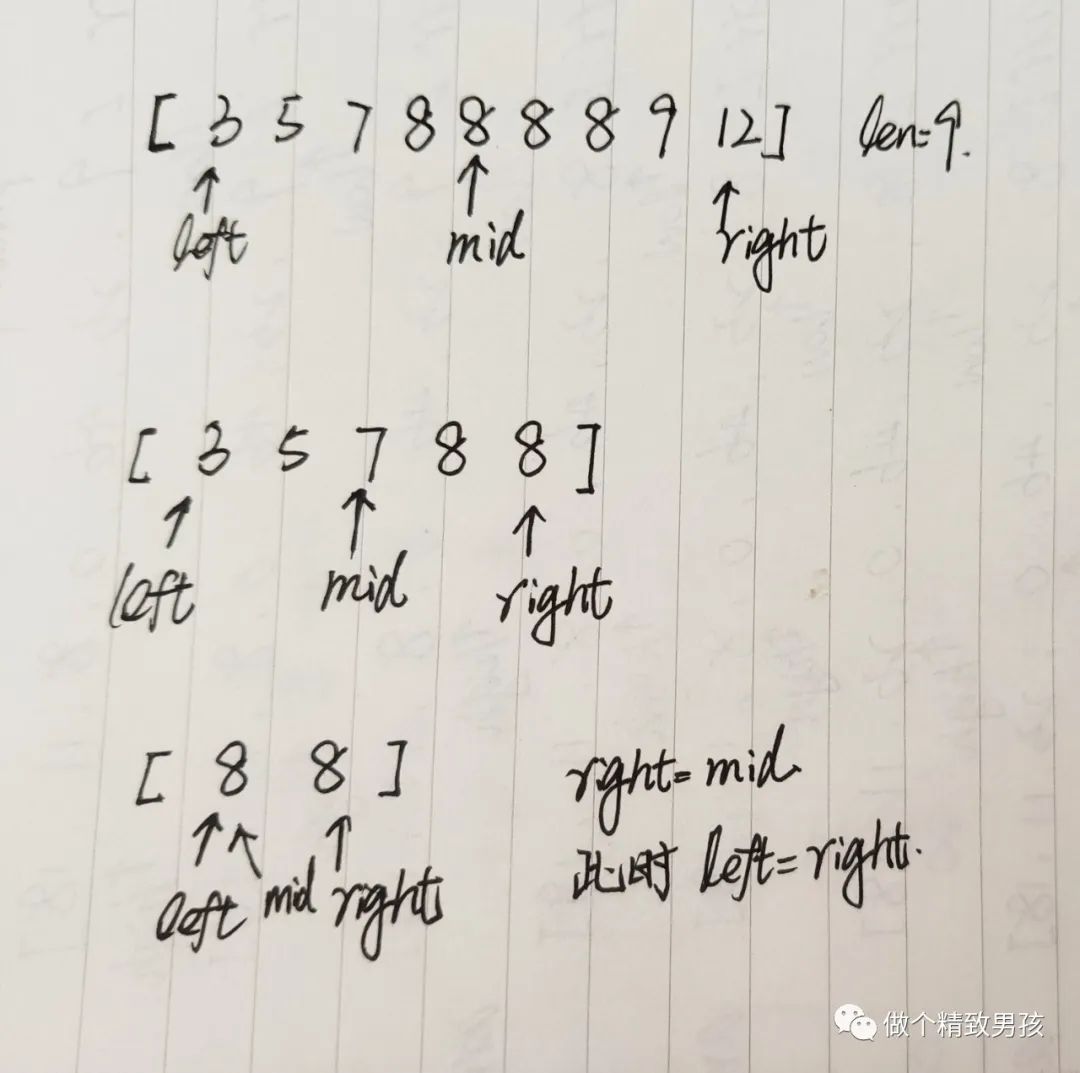 [ 3 5 7 8 8 8 8 9 12 ] len=9.
left mid right
[ 3 5 7 8 8 ]
left mid right
[ 8 8 ] right=mid.
此时 left=right.
left mid right
做个精致男孩